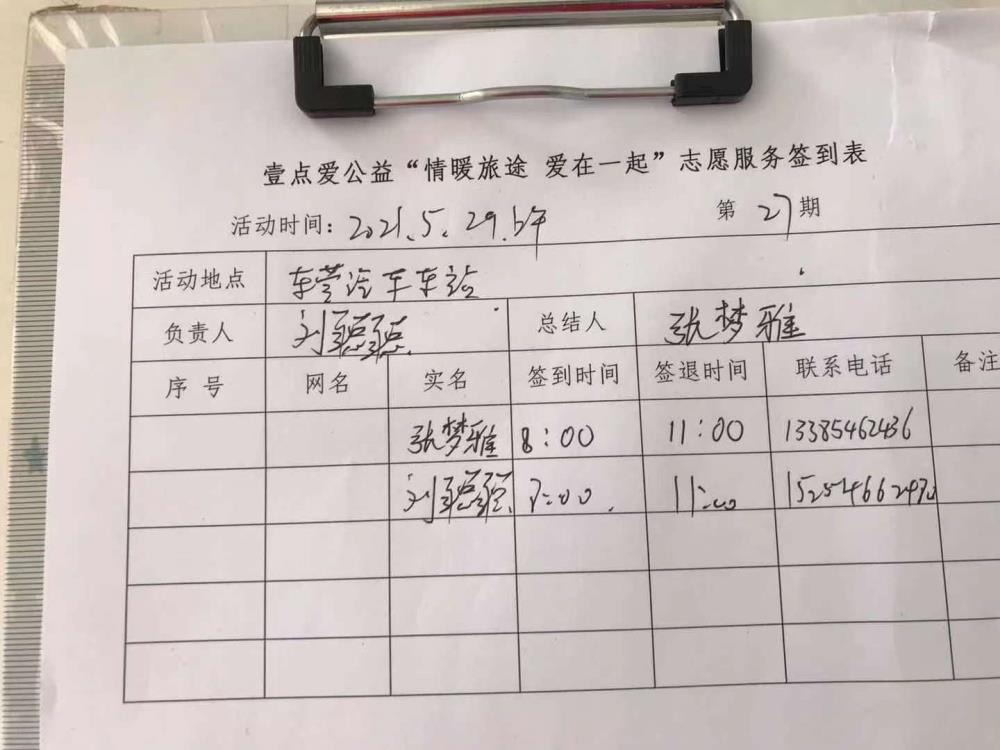 壹点爱公益“情暖旅途 爱在一起”志愿服务签到表
活动时间：2021.5.29.上午 第 27 期
活动地点 东营汽车车站
负责人 刘聪聪 总结人 张梦雅
序号 网名 实名 签到时间 签退时间 联系电话 备注
张梦雅 8:00 11:00 13385462436
刘聪聪 7:00 11:00 15254662470